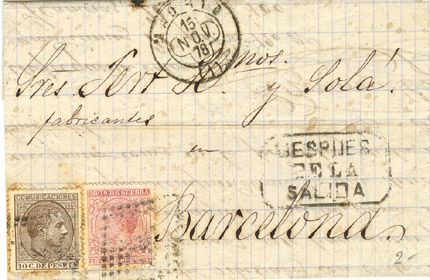 MADRID
15
NOV
78
(1)
Sres Fort Hermanos. y Solá.
fabricantes
en
DESPUES
DE LA
SALIDA
Barcelona
COMUNICACIONES
10 C. DE PESETA
IMPTO DE GUERRA
2-